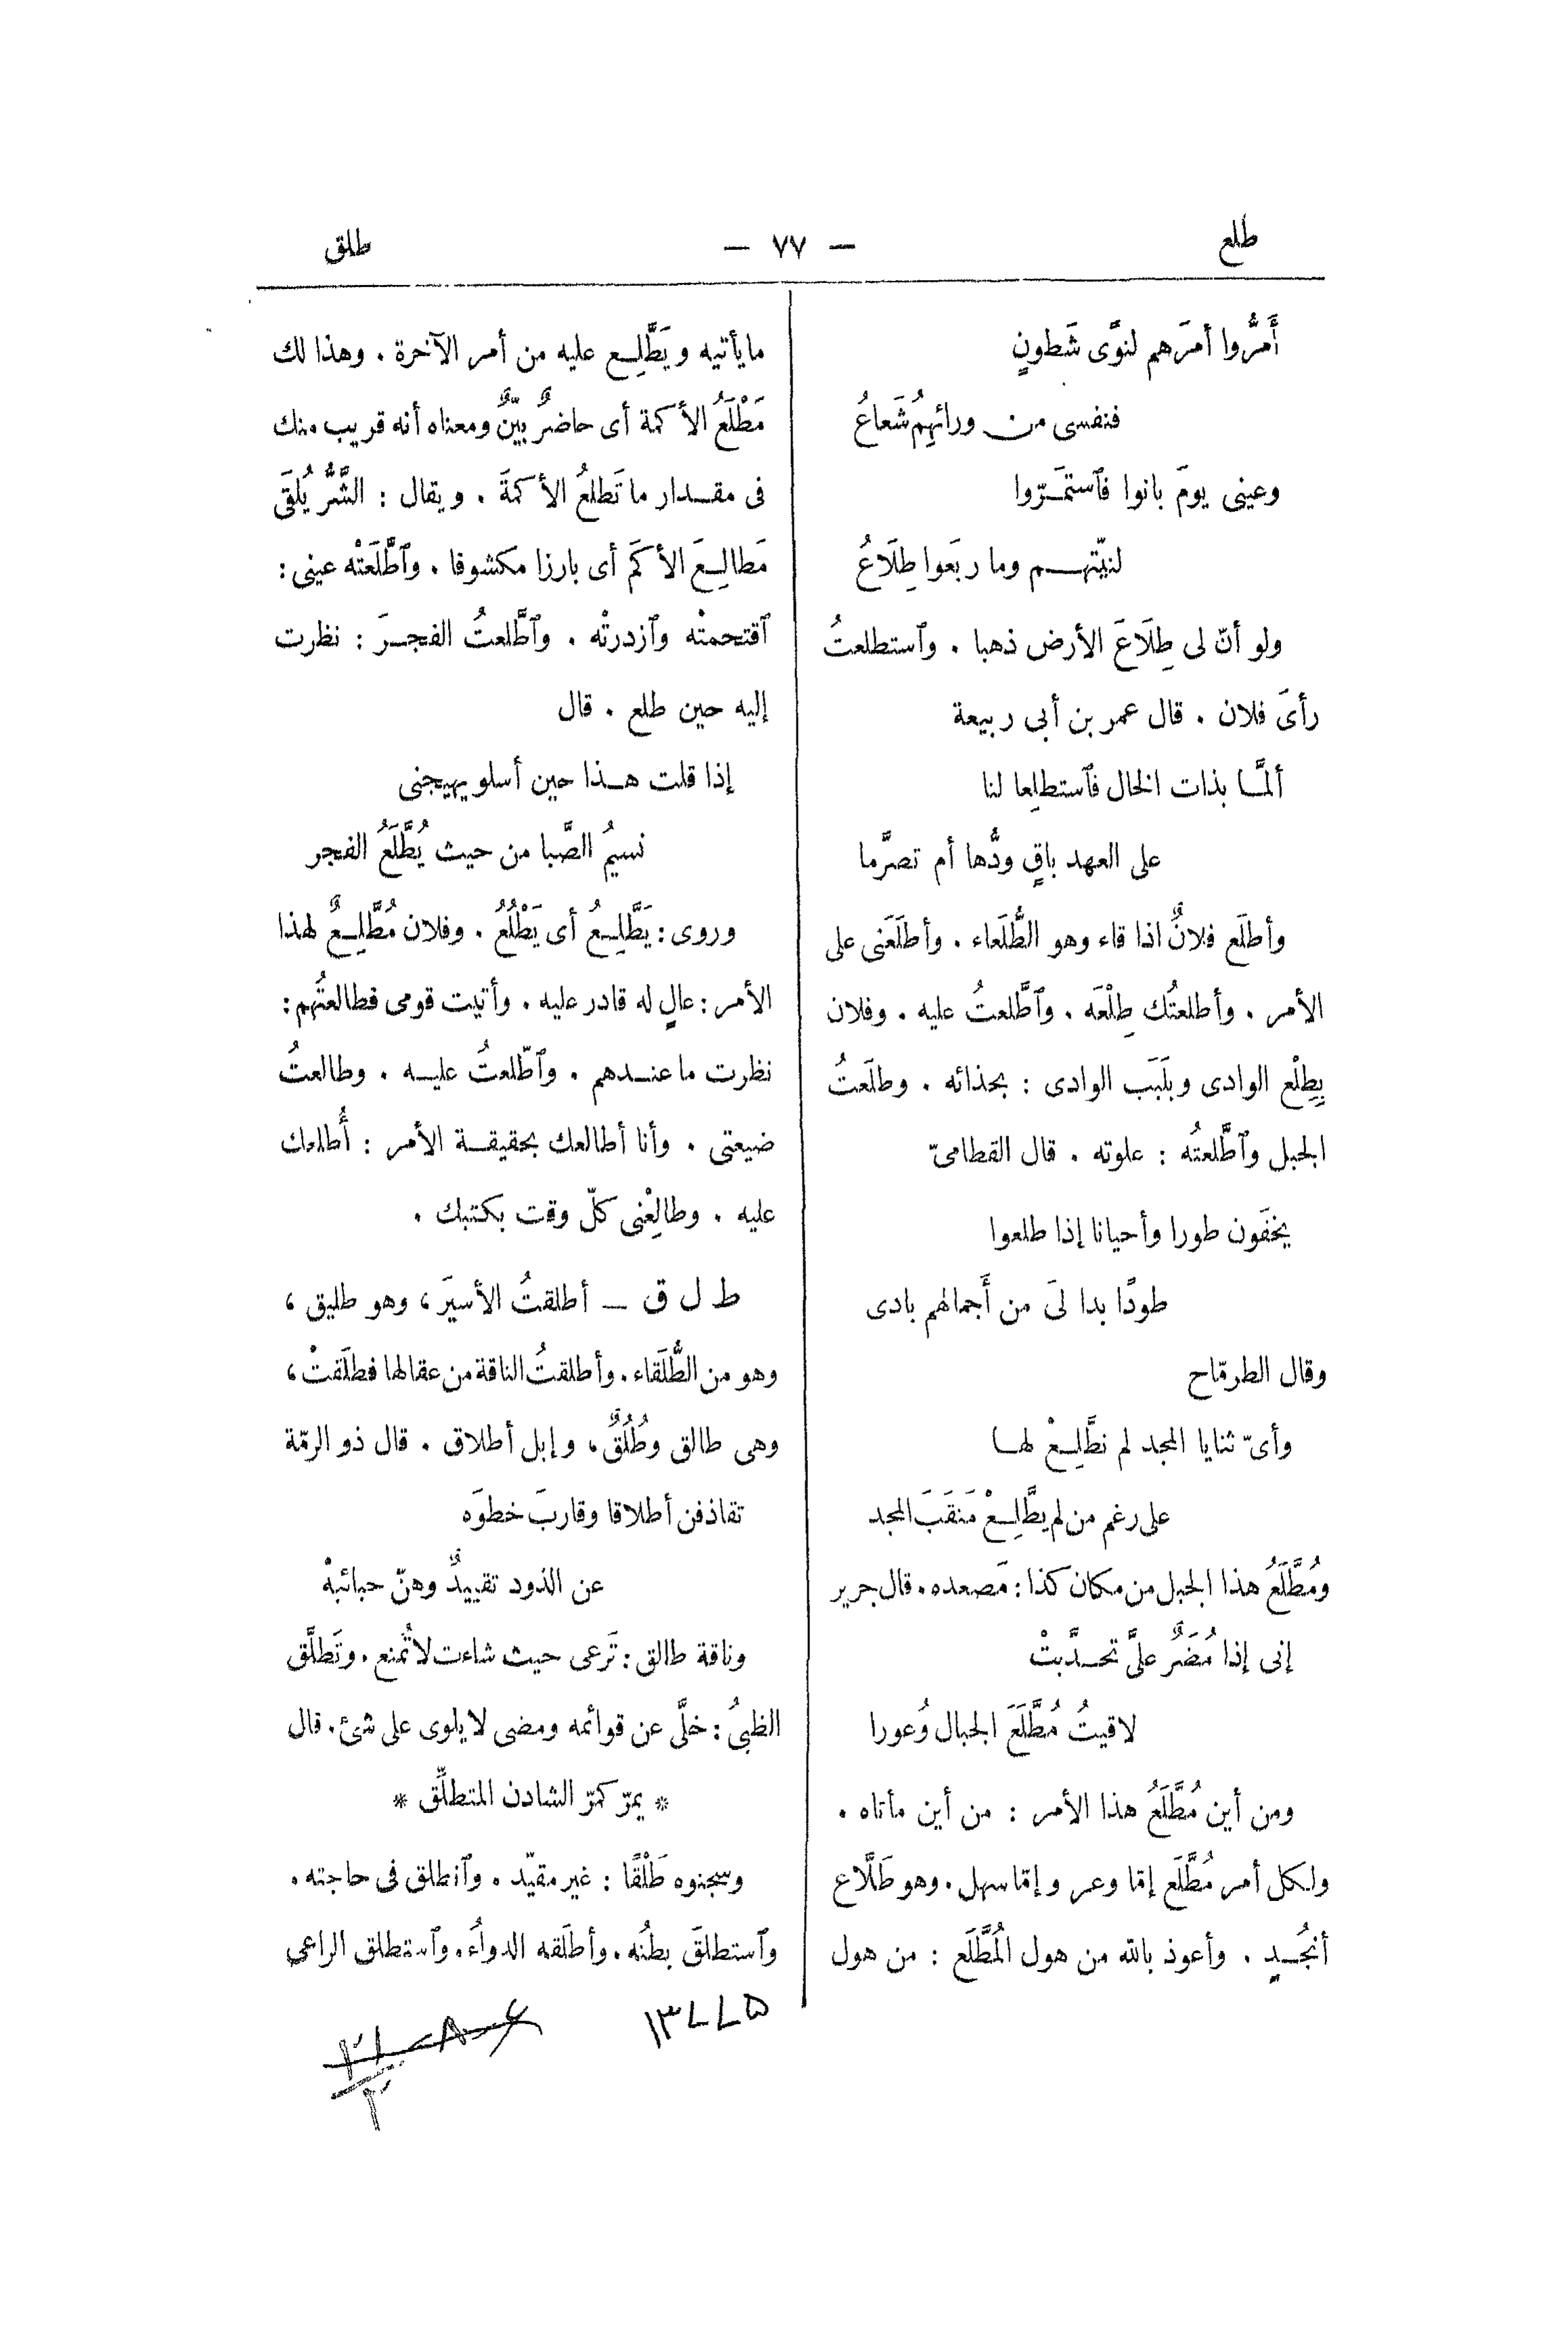 طلع
— ٧٧ —
طلق
أَمَرُّوا أمرَهم لنوًى شَطونٍ
فنفسى من ورائهِمُ شَعاعُ
وعينى يومَ بانوا فٱستمَـرّوا
لنيّتهـم وما ربَعوا طِلَاعُ
ولو أنّ لى طِلَاعَ الأرض ذهبا . وٱستطلعتُ
رأىَ فلان . قال عمر بن أبى ربيعة
ألمَّـا بذات الخال فٱستطلِعا لنا
على العهد باقٍ ودُّها أم تصرَّما
وأطلَع فلانٌ اذا قاء وهو الطُّلَعاء . وأطلَعَنى على
الأمر . وأطلعتُك طِلْعَه . وٱطَّلعتُ عليه . وفلان
بِطِلْع الوادى وبلَبَب الوادى : بحذائه . وطلَعتُ
الجبل وٱطَّلعتُه : علوته . قال القطامىّ
يخفَون طورا وأحيانا إذا طلعوا
طودًا بدا لىَ من أَجمالهم بادى
وقال الطرمّاح
وأىّ ثنايا المجد لم نطَّلِـعْ لهـا
على رغم من لم يطَّلِـعْ مَنقَبَ المجد
ومُطَّلَعُ هذا الجبل من مكان كذا : مَصعده . قال جرير
إنى إذا مُضَرٌ علىَّ تحـدَّبتْ
لاقيتُ مُطَّلَعَ الجبال وُعورا
ومن أين مُطَّلَعُ هذا الأمر : من أين مأتاه .
ولكل أمر مُطَّلَع إمّا وعر وإمّا سهل . وهو طَلَّاع
أنجُـدٍ . وأعوذ بالله من هول المُطَّلَع : من هول
مايأتيه ويَطَّلِـع عليه من أمر الآخرة . وهذا لك
مَطْلَعُ الأكمة أى حاضرٌ بيّنٌ ومعناه أنه قريب منك
فى مقـدار ما تَطلعُ الأكمةَ . ويقال : الشَّرُّ يُلقَى
مَطالِـعَ الأكَم أى بارزا مكشوفا . وٱطَّلَعَتْه عينى :
ٱقتحمتْه وٱزدرتْه . وٱطَّلعتُ الفجـرَ : نظرت
إليه حين طلع . قال
إذا قلت هـذا حين أسلو يهيجنى
نسيمُ الصَّبا من حيث يُطَّلَعُ الفجر
وروى : يَطَّلِـعُ أى يَطْلُعُ . وفلان مُطَّلِـعٌ لهذا
الأمر : عالٍ له قادر عليه . وأتيت قومى فطالعتُهم :
نظرت ما عنـدهم . وٱطّلعتُ عليـه . وطالعتُ
ضيعتى . وأنا أطالعك بحقيقـة الأمر : أُطلعك
عليه . وطالِعْنى كلّ وقت بكتبك .
ط ل ق — أطلقتُ الأسيَر ، وهو طليق ،
وهو من الطُّلَقاء . وأطلقتُ الناقة من عقالها فطلَقتْ ،
وهى طالق وطُلُقٌ ، وإبل أطلاق . قال ذو الرمّة
تقاذفن أطلاقا وقاربَ خطوَه
عن الذود تقييدٌ وهنّ حبائبهْ
وناقة طالق : تَرعى حيث شاءت لا تُمنع . وتَطلَّق
الظبىُ : خلَّى عن قوائمه ومضى لا يلوى على شئ . قال
* يمرّ كمرّ الشادن المتطلِّق *
وسجنوه طَلْقًا : غير مقيّد . وٱنطلق فى حاجته .
وٱستطلقَ بطنُه . وأطلَقه الدواءُ . وٱستطلق الراعى